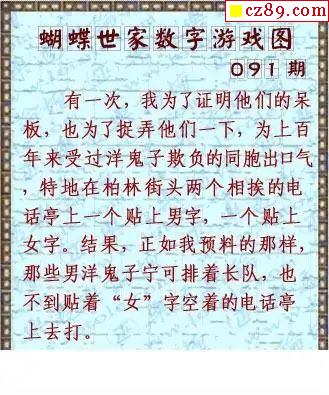 cz89.com
蝴蝶世家数字游戏图
091 期
有一次，我为了证明他们的呆
板，也为了捉弄他们一下，为上百
年来受过洋鬼子欺负的同胞出口气
，特地在柏林街头两个相挨的电
话亭上一个贴上男字，一个贴上
女字。结果，正如我预料的那样，
那些男洋鬼子宁可排着长队，也
不到贴着“女”字空着的电话亭
上去打。